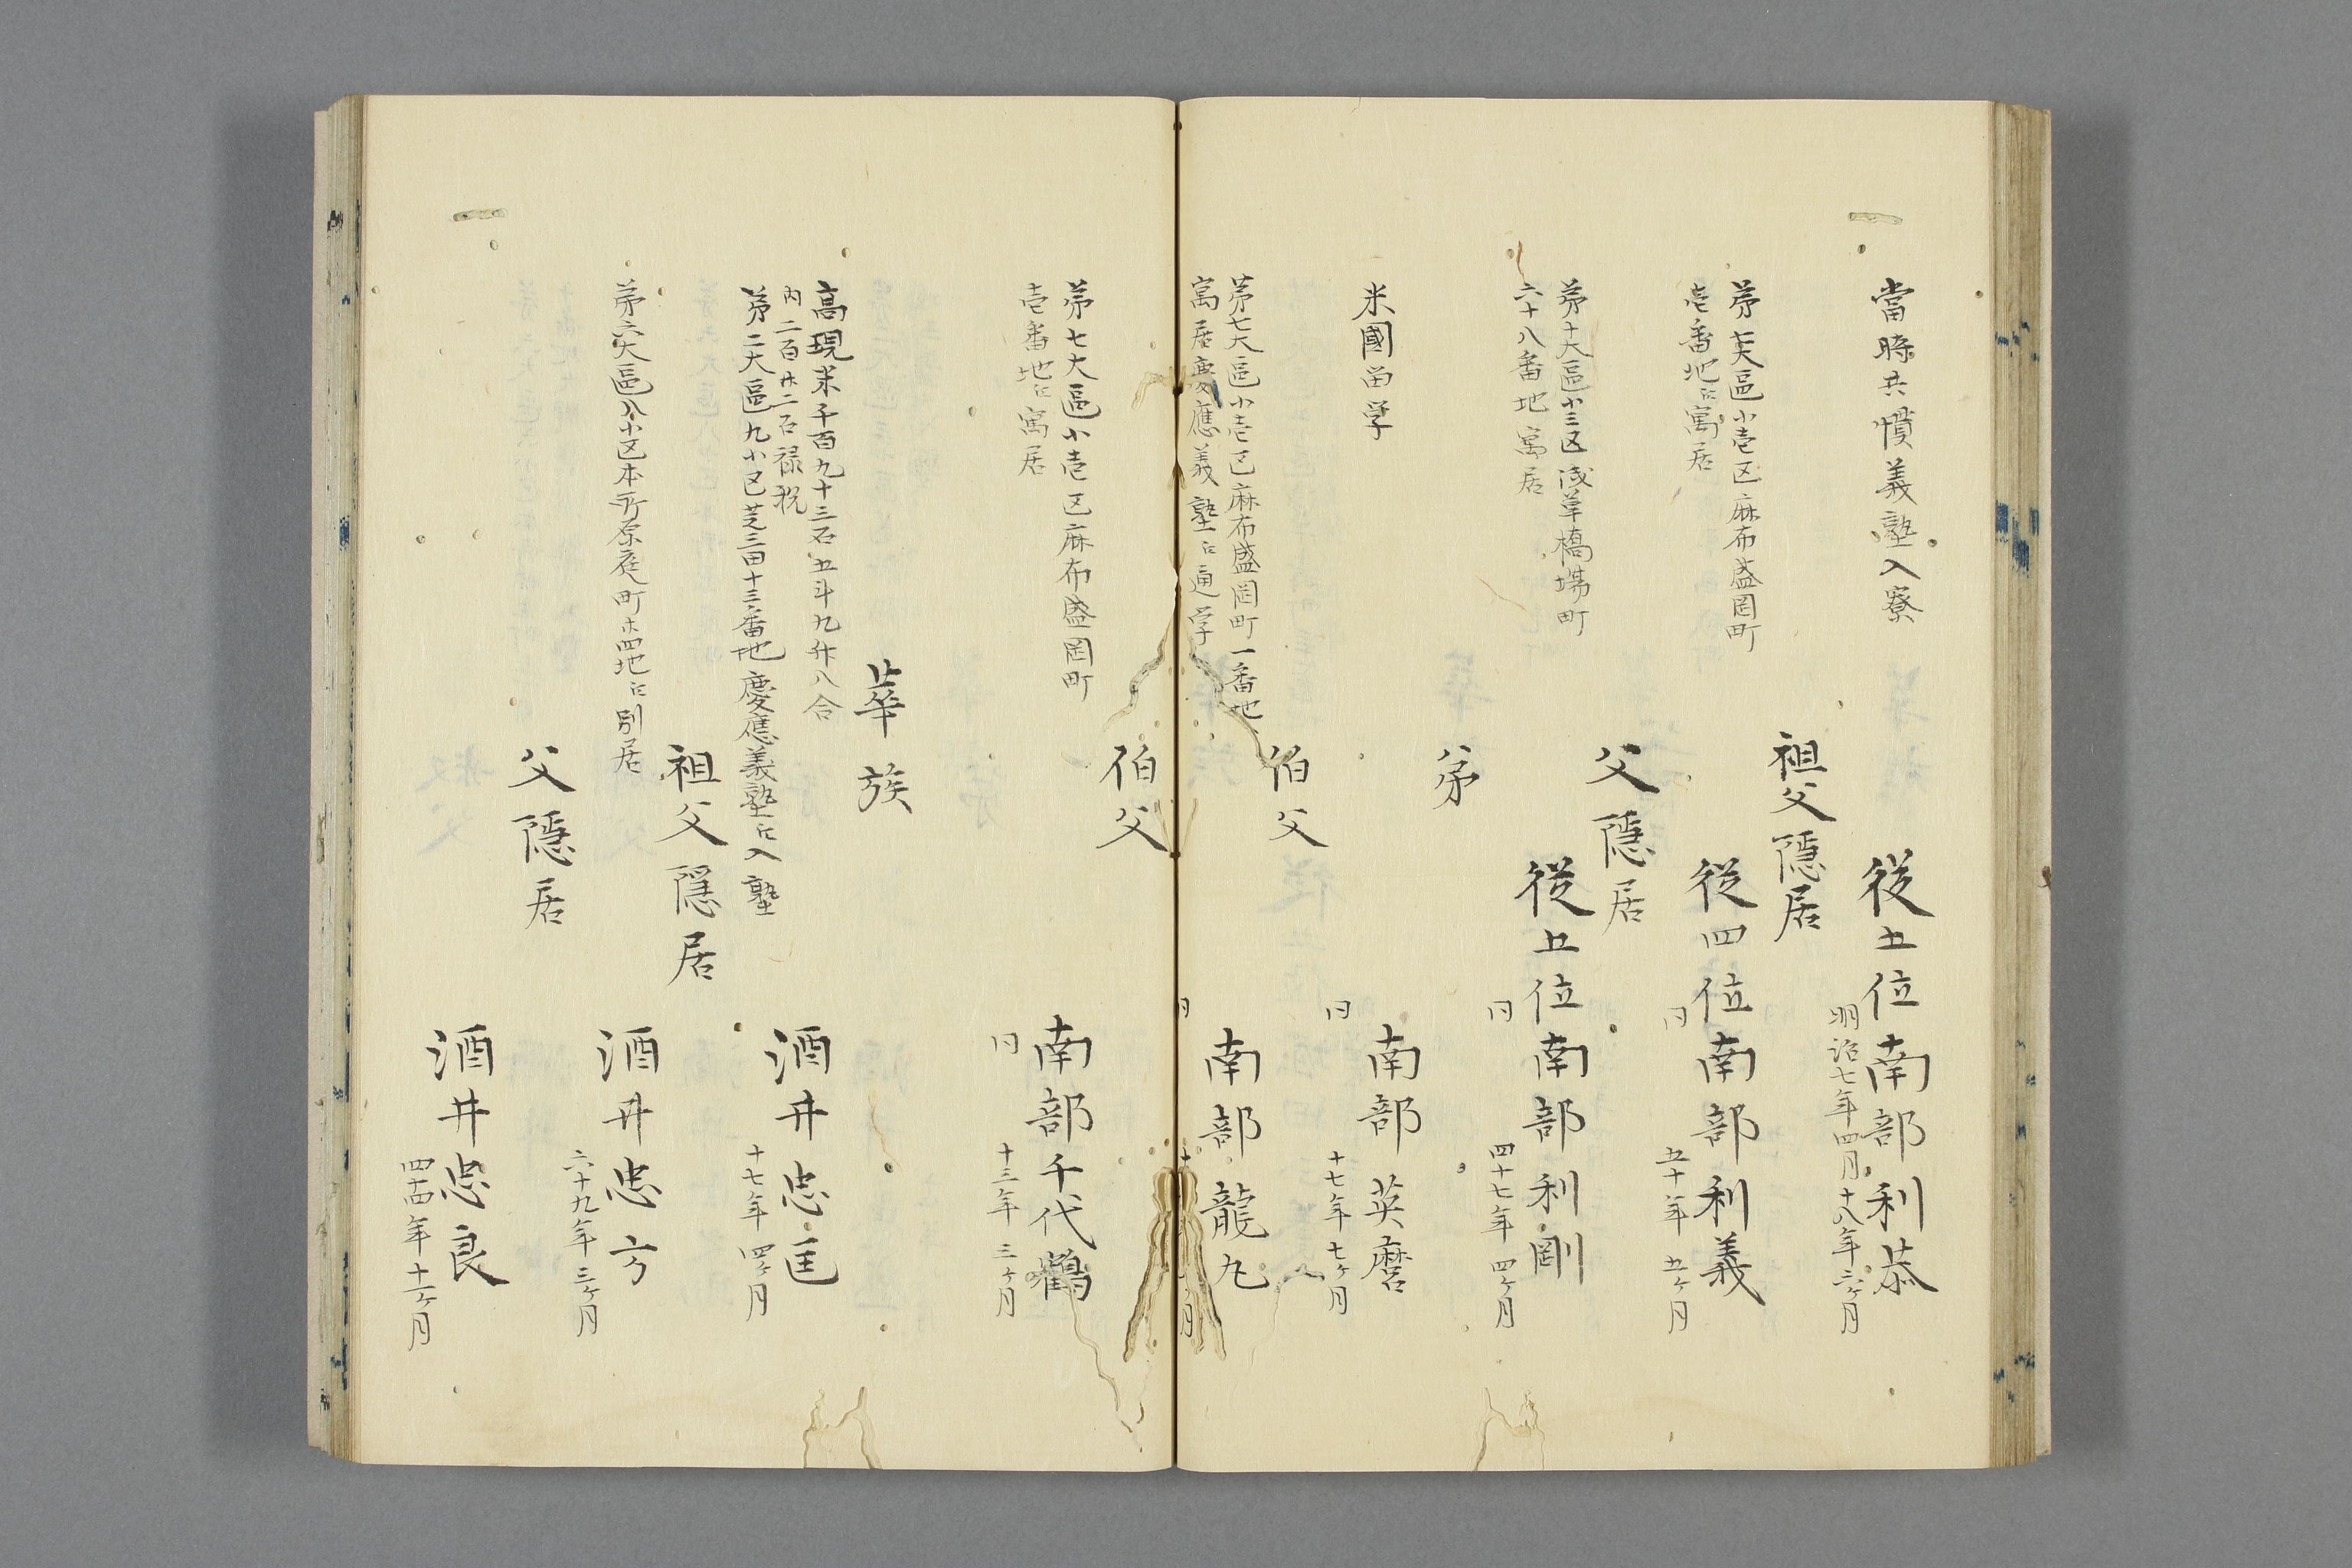 當時共慣義塾入寮
従五位南部利恭
明治七年四月十八年六ヶ月
祖父隠居
第七大區小壱区麻布盛岡町
壱番地ニ寓居
従四位南部利義
同 五十年五ヶ月
父隠居
第十大區小三区浅草橋場町
六十八番地寓居
従五位南部利剛
同 四十七年四ヶ月
弟
米國留学
南部英麿
同 十七年七ヶ月
伯父
第七大區小壱区麻布盛岡町一番地
寓居慶應義塾ニ通学
南部龍丸
同
伯父
第七大區小壱区麻布盛岡町
壱番地ニ寓居
南部千代鶴
同 十三年三ヶ月
華族
高現米千百九十三石五斗九升八合
内二百廾二石禄税
第二大區九小区芝三田十三番地慶應義塾ニ入塾
酒井忠匡
十七年四ヶ月
祖父隠居
酒井忠方
六十九年三ヶ月
第六大區八小区本所原庭町廾四地ニ別居
父隠居
酒井忠良
四十四年十一ヶ月